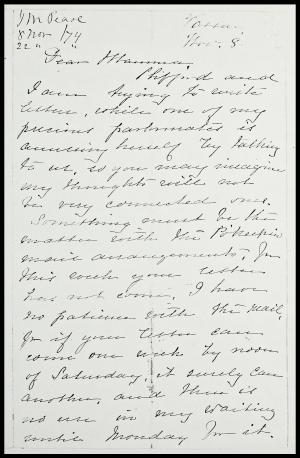 J M Pease
8 Nov /74
22 " "
Vassar,
Nov. 8
Dear Mamma,
Clifford and
I am trying to write
letters, while one of my
precious parlormates is
amusing herself by talking
to us, so you may imagine
my thoughts will not
be very connected ones.
Something must be the
matter with the Po'keepsie
mail arrangements, for
this week your letter
has not come. I have
no patience with the mail,
for if your letter can
come one week by noon
of Saturday, it surely can
another, and there is
no use in my waiting
until Monday for it.